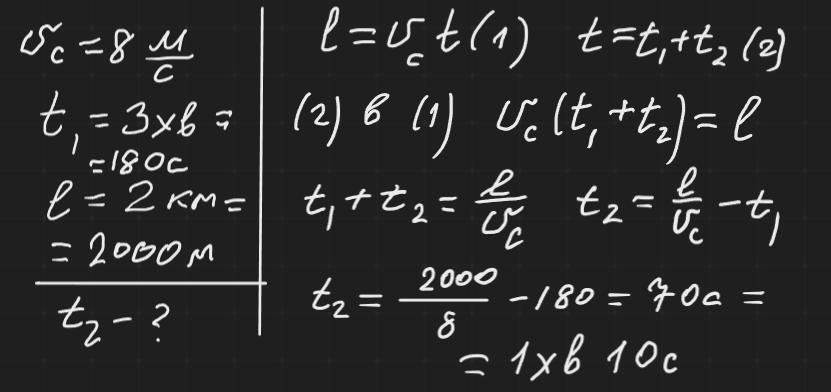 υ_c = 8 м/с
t₁ = 3 хв =
= 180 с
l = 2 км =
= 2000 м
t₂ - ?
l = υ_c t (1) t = t₁ + t₂ (2)
(2) в (1) υ_c (t₁ + t₂) = l
t₁ + t₂ = l/υ_c t₂ = l/υ_c - t₁
t₂ = 2000/8 - 180 = 70 с =
= 1 хв 10 с